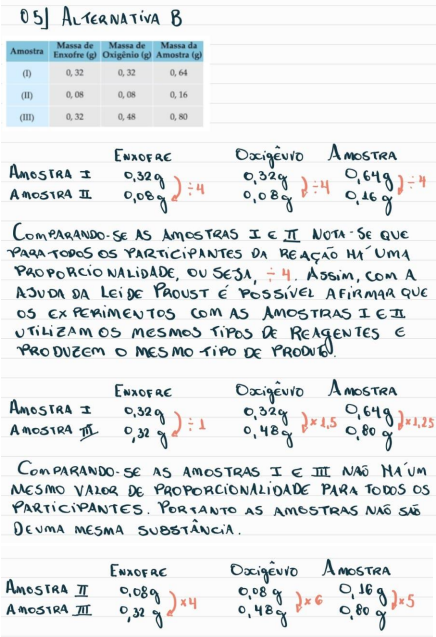 05) ALTERNATIVA B
Amostra | Massa de Enxofre (g) | Massa de Oxigênio (g) | Massa da Amostra (g)
(I) 0, 32 0, 32 0, 64
(II) 0, 08 0, 08 0, 16
(III) 0, 32 0, 48 0, 80
ENXOFRE OXIGÊNIO AMOSTRA
AMOSTRA I 0,32g 0,32g 0,64g
÷4 ÷4 ÷4
AMOSTRA II 0,08g 0,08g 0,16g
COMPARANDO-SE AS AMOSTRAS I E II NOTA-SE QUE
PARA TODOS OS PARTICIPANTES DA REAÇÃO HÁ UMA
PROPORCIONALIDADE, OU SEJA, ÷4. ASSIM, COM A
AJUDA DA LEI DE PROUST É POSSÍVEL AFIRMAR QUE
OS EXPERIMENTOS COM AS AMOSTRAS I E II
UTILIZAM OS MESMOS TIPOS DE REAGENTES E
PRODUZEM O MESMO TIPO DE PRODUTO.
ENXOFRE OXIGÊNIO AMOSTRA
AMOSTRA I 0,32g 0,32g 0,64g
÷1 ×1,5 ×1,25
AMOSTRA III 0,32 g 0,48g 0,80 g
COMPARANDO-SE AS AMOSTRAS I E III NÃO HÁ UM
MESMO VALOR DE PROPORCIONALIDADE PARA TODOS OS
PARTICIPANTES. PORTANTO AS AMOSTRAS NÃO SÃO
DE UMA MESMA SUBSTÂNCIA.
ENXOFRE OXIGÊNIO AMOSTRA
AMOSTRA II 0,08g 0,08 g 0,16g
×4 ×6 ×5
AMOSTRA III 0,32 g 0,48g 0,80g